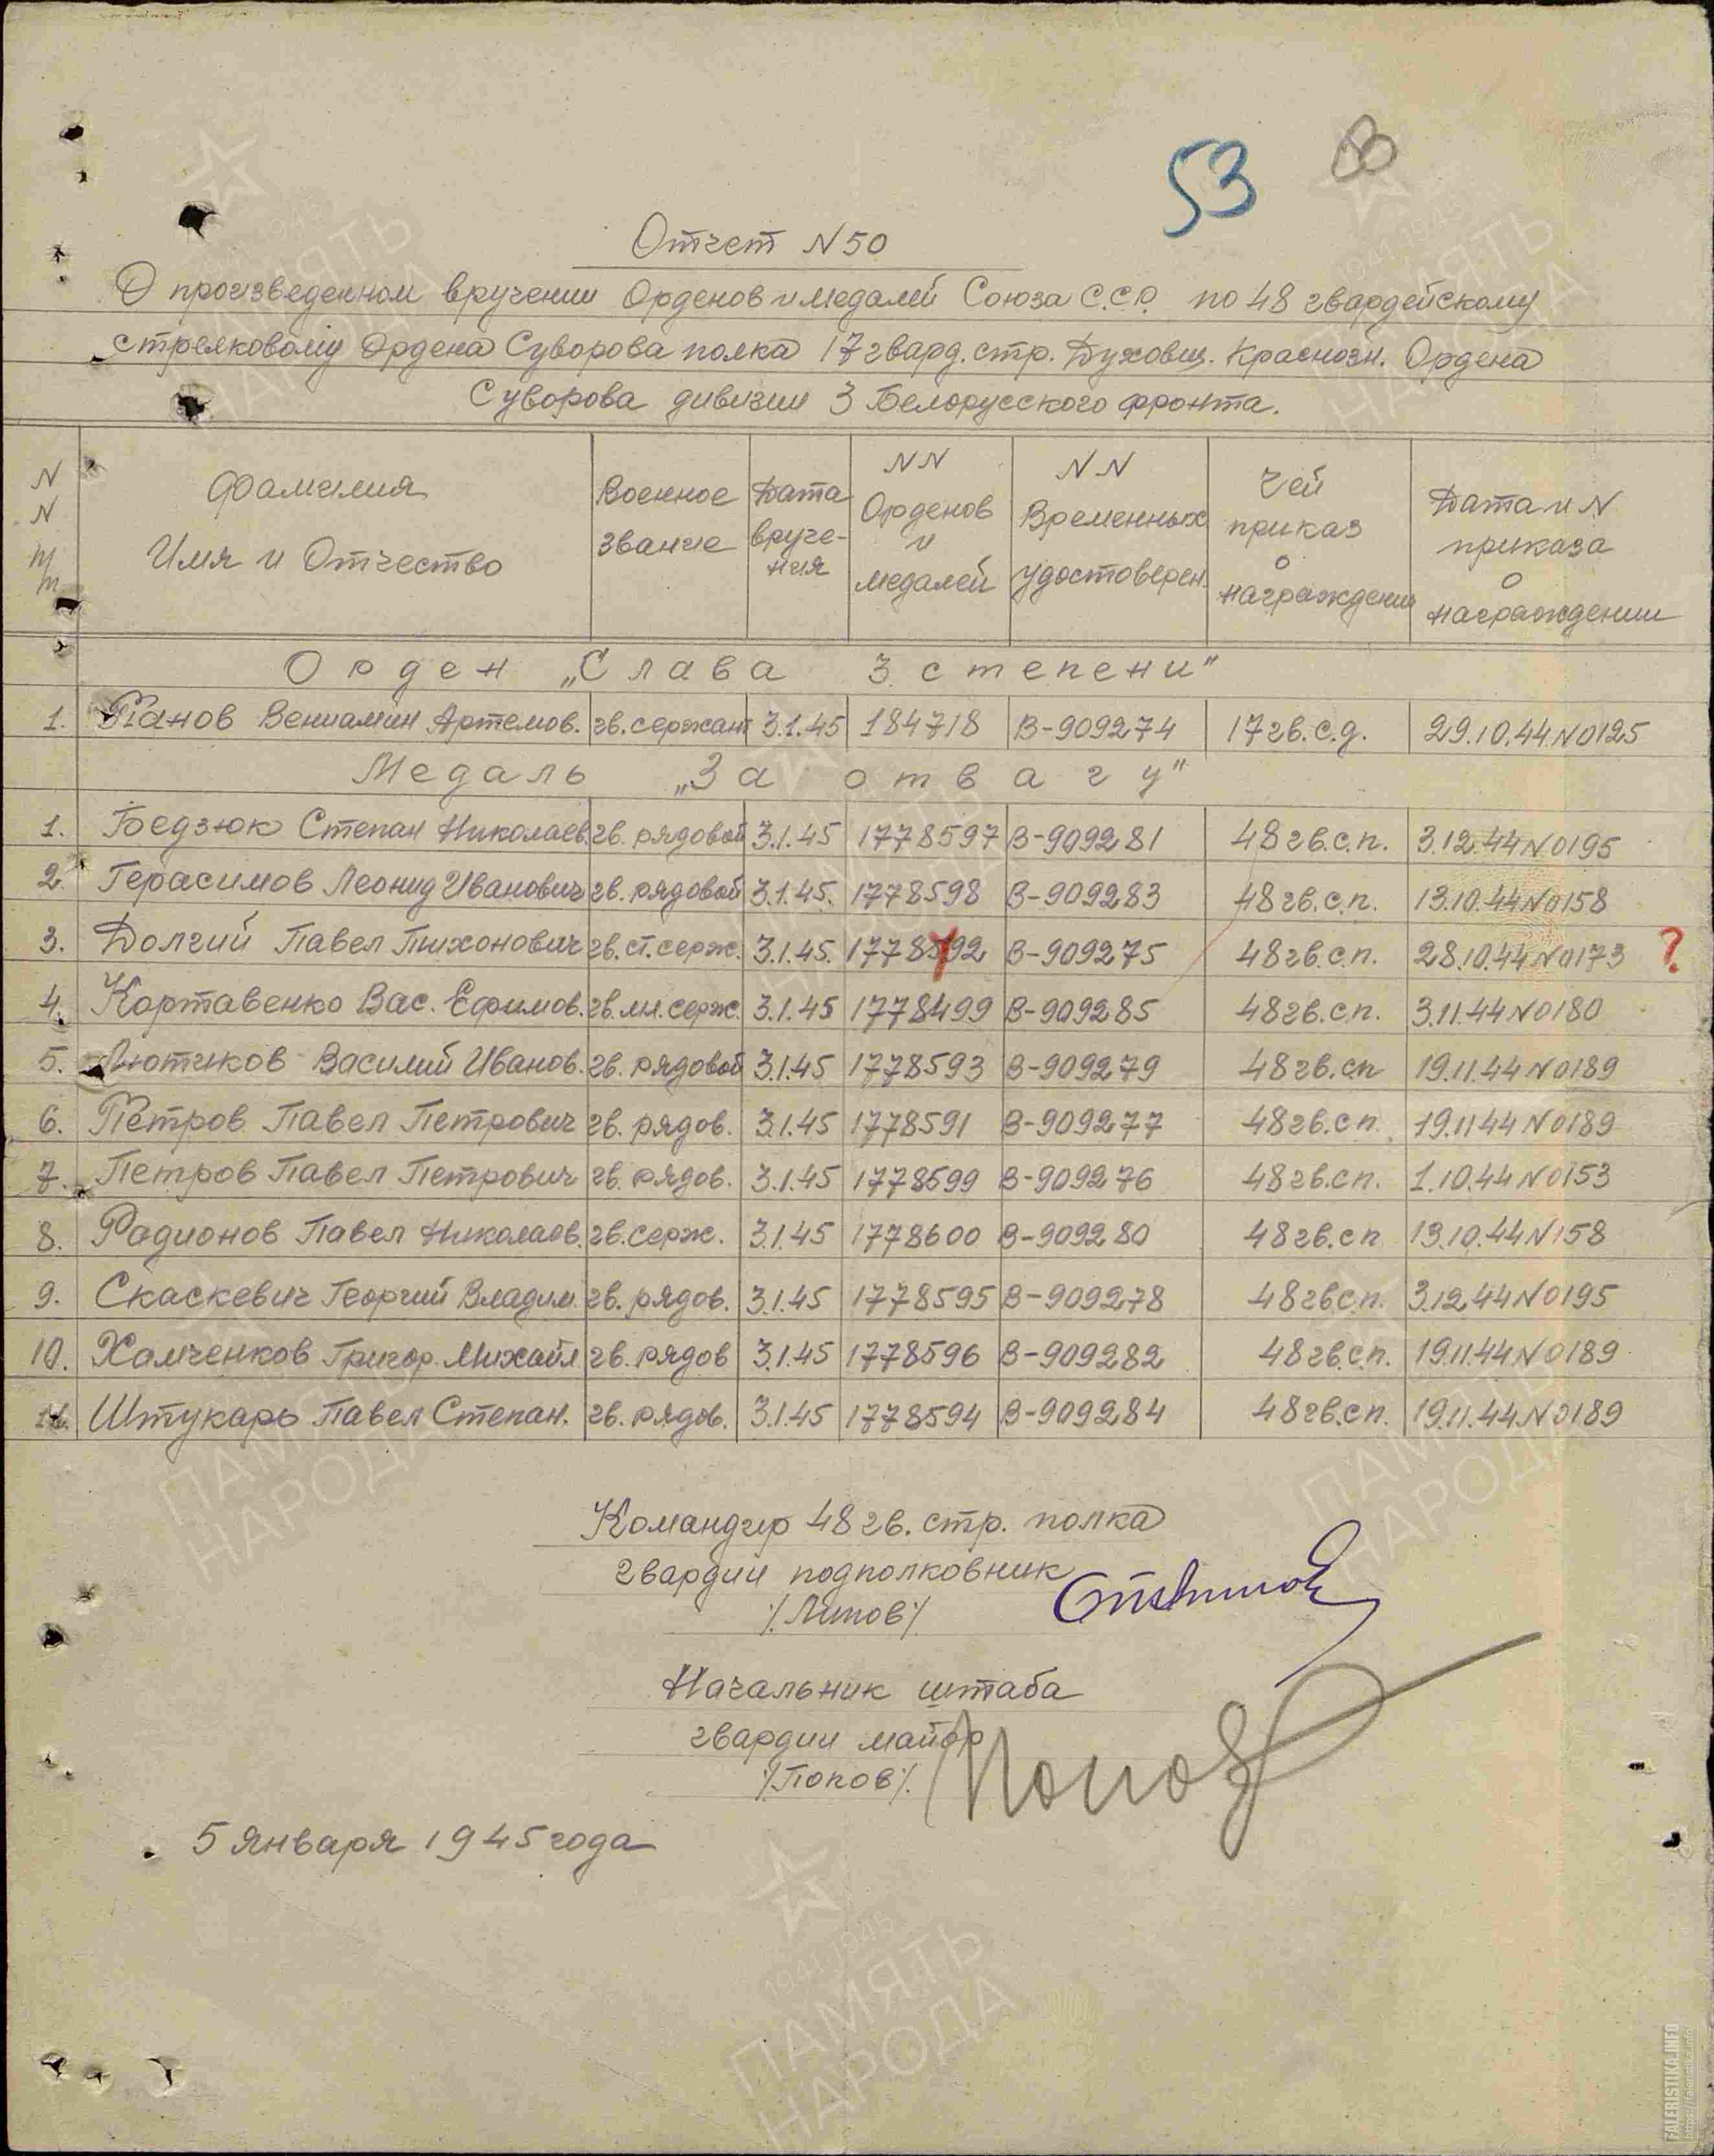 53 80
Отчет N 50
О произведенном вручении Орденов и медалей Союза С.С.Р. по 48 гвардейскому
стрелковому Ордена Суворова полка 17 гвард. стр. Духовщ. Краснозн. Ордена
Суворова дивизии 3 Белорусского фронта.
NN п/п | Фамилия Имя и Отчество | Военное звание | Дата вруче-ния | NN Орденов и медалей | NN Временных удостоверен. | Чей приказ о награждении | Дата и N приказа о награждении
Орден „Слава 3 степени"
1. Панов Вениамин Артемов. гв. сержант 3.1.45 184718 В-909274 17 гв.с.д. 29.10.44 N 0125
Медаль „За отвагу"
1. Бедзюк Степан Николаев. гв. рядовой 3.1.45 1778597 В-909281 48 гв.с.п. 3.12.44 N 0195
2. Герасимов Леонид Иванович гв. рядовой 3.1.45. 1778598 В-909283 48 гв.с.п. 13.10.44 N 0158
3. Долгий Павел Тихонович гв. ст. серж. 3.1.45. 1778592 В-909275 48 гв.с.п. 28.10.44 N 0173 ?
4. Кортавенко Вас. Ефимов. гв. мл. серж. 3.1.45 1778499 В-909285 48 гв.с.п. 3.11.44 N 0180
5. Лютиков Василий Иванов. гв. рядовой 3.1.45 1778593 В-909279 48 гв.сп 19.11.44 N 0189
6. Петров Павел Петрович гв. рядов. 3.1.45 1778591 В-909277 48 гв.сп. 19.11.44 N 0189
7. Петров Павел Петрович гв. рядов. 3.1.45 1778599 В-909276 48 гв.сп. 1.10.44 N 0153
8. Радионов Павел Николаев. гв. серж. 3.1.45 1778600 В-909280 48 гв.сп 13.10.44 N 158
9. Скаскевич Георгий Владим. гв. рядов. 3.1.45 1778595 В-909278 48 гв.с.п. 3.12.44 N 0195
10. Хамченков Григор. Михайл гв. рядов 3.1.45 1778596 В-909282 48 гв.с.п. 19.11.44 N 0189
11. Штукарь Павел Степан. гв. рядов. 3.1.45 1778594 В-909284 48 гв.сп. 19.11.44 N 0189
Командир 48 гв. стр. полка
гвардии подполковник
/Липов/
Начальник штаба
гвардии майор
/Попов/. Попов
5 января 1945 года
ПАМЯТЬ НАРОДА
1941-1945
FALERISTIKA.INFO
https://faleristika.info/